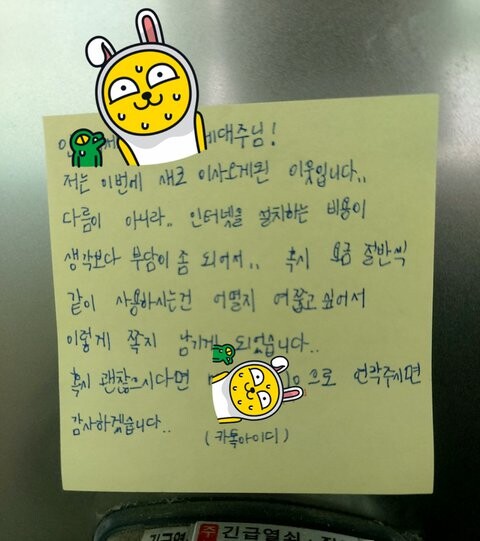 세대주님!
저는 이번에 새로 이사오게된 이웃입니다..
다름이 아니라.. 인터넷을 설치하는 비용이
생각보다 부담이 좀 되어서.. 혹시 요금 절반씩
같이 사용하시는건 어떨지 여쭙고 싶어서
이렇게 쪽지 남기게 되었습니다..
혹시 괜찮으시다면 으로 연락주시면
감사하겠습니다.. (카톡아이디)
주 긴급열쇠